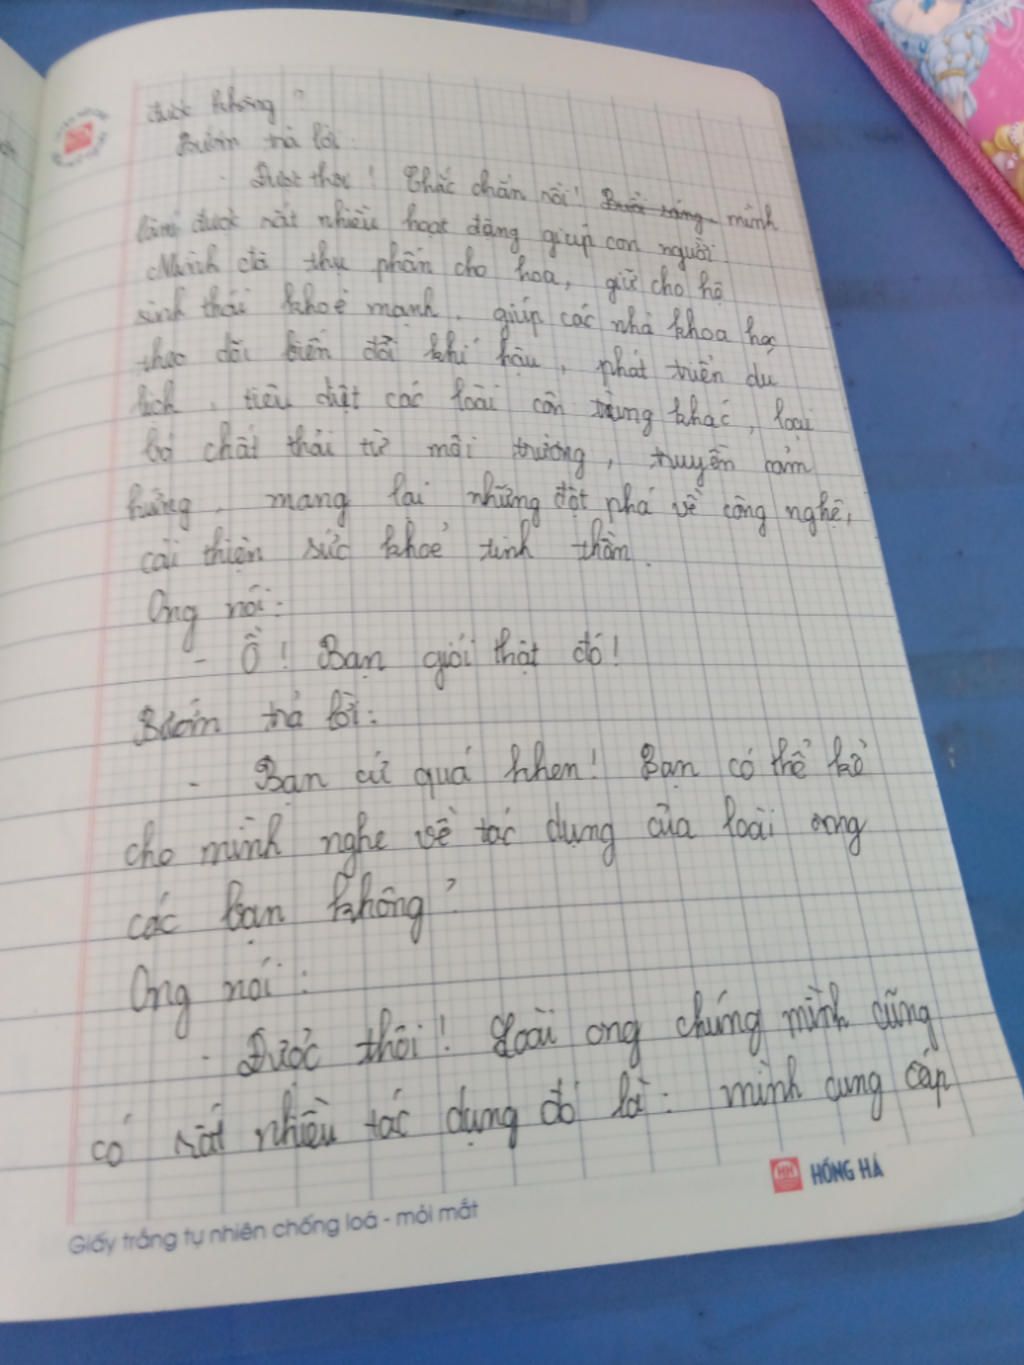 được không?
Bướm trả lời:
- Được thôi! Chắc chắn rồi! Buổi sáng mình
làm được rất nhiều hoạt động giúp con người.
Mình đã thụ phấn cho hoa, giữ cho hệ
sinh thái khoẻ mạnh, giúp các nhà khoa học
theo dõi biến đổi khí hậu, phát triển du
lịch, tiêu diệt các loài côn trùng khác, loại
bỏ chất thải từ môi trường, truyền cảm
hứng, mang lại những đột phá về công nghệ,
cải thiện sức khoẻ tinh thần.
Ong nói:
- Ồ! Bạn giỏi thật đó!
Bướm trả lời:
- Bạn cứ quá khen! Bạn có thể kể
cho mình nghe về tác dụng của loài ong
các bạn không?
Ong nói:
- Được thôi! Loài ong chúng mình cũng
có rất nhiều tác dụng đó là: mình cung cấp
HH HỒNG HÀ
Giấy trắng tự nhiên chống loá - mỏi mắt